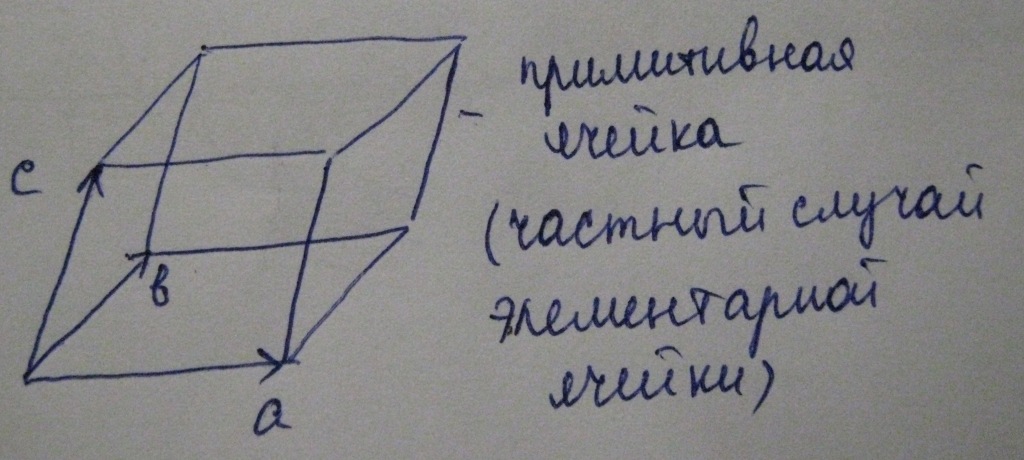 с
в
а
- примитивная
ячейка
(частный случай
элементарной
ячейки)